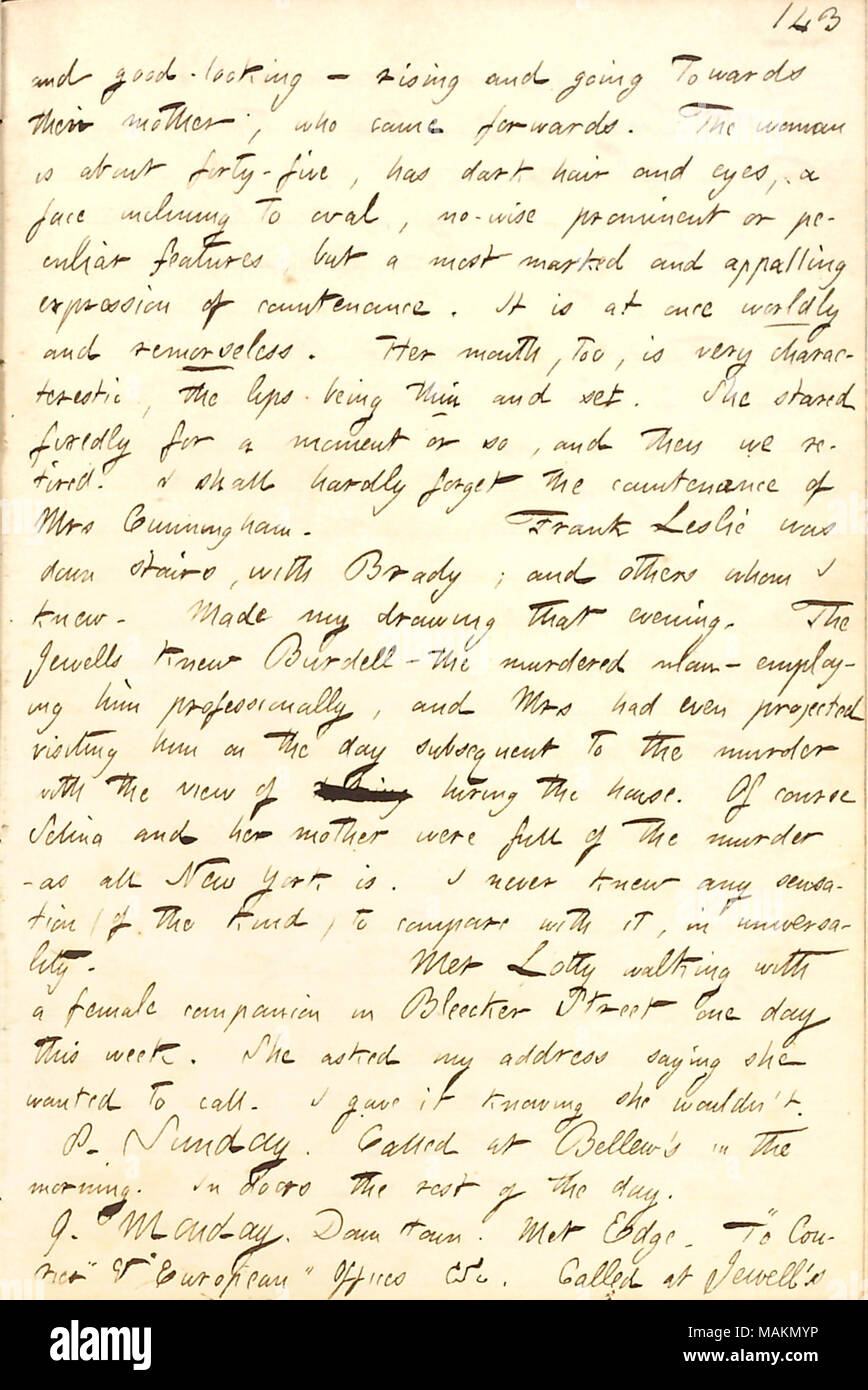 143
and good-looking — rising and going towards
their mother, who came forwards. The woman
is about forty-five, has dark hair and eyes, a
face inclining to oval, no-wise prominent or pe-
culiar features, but a most marked and appalling
expression of countenance. It is at once worldly
and remorseless. Her mouth, too, is very charac-
terestic, the lips being thin and set. She stared
fixedly for a moment or so, and then we re-
tired. I shall hardly forget the countenance of
Mrs Cunningham. Frank Leslie was
down stairs, with Brady; and others whom I
knew. Made my drawing that evening. The
Jewells knew Burdell — the murdered man — employ-
ing him professionally, and Mrs had even projected
visiting him on the day subsequent to the murder
with the view of hiring the house. Of course
Selina and her mother were full of the murder
— as all New York is. I never knew any sensa-
tion (of the kind) to compare with it, in universa-
lity. Met Lotty walking with
a female companion in Bleecker Street one day
this week. She asked my address saying she
wanted to call. I gave it knowing she wouldn't.
8. Sunday. Called at Bellew's in the
morning. In doors the rest of the day.
9. Monday. Down town. Met Edge. To "Cou-
rier" & "European" Offices &c. Called at Jewell's
alamy
Image ID: MAKMYP
www.alamy.com